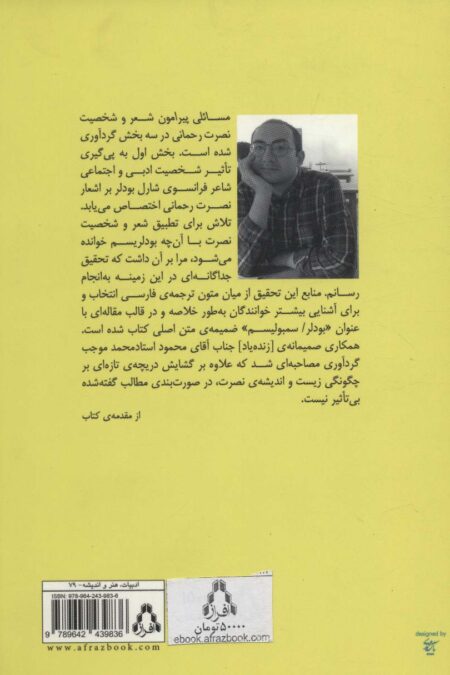 مسائلی پیرامون شعر و شخصیت
نصرت رحمانی در سه بخش گردآوری
شده است. بخش اول به پی‌گیری
تأثیر شخصیت ادبی و اجتماعی
شاعر فرانسوی شارل بودلر بر اشعار
نصرت رحمانی اختصاص می‌یابد.
تلاش برای تطبیق شعر و شخصیت
نصرت با آن‌چه بودلریسم خوانده
می‌شود، مرا بر آن داشت که تحقیق
جداگانه‌ای در این زمینه به‌انجام
رسانم. منابع این تحقیق از میان متون ترجمه‌ی فارسی انتخاب و
برای آشنایی بیشتر خوانندگان به‌طور خلاصه و در قالب مقاله‌ای با
عنوان «بودلر/ سمبولیسم» ضمیمه‌ی متن اصلی کتاب شده است.
همکاری صمیمانه‌ی [زنده‌یاد] جناب آقای محمود استادمحمد موجب
گردآوری مصاحبه‌ای شد که علاوه بر گشایش دریچه‌ی تازه‌ای بر
چگونگی زیست و اندیشه‌ی نصرت، در صورت‌بندی مطالب گفته‌شده
بی‌تأثیر نیست.
از مقدمه‌ی کتاب
ادبیات، هنر و اندیشه- ۷۹
ISBN: 978-964-243-983-6
9 789642 439836
افراز
www.afrazbook.com
افراز
۵۰۰۰۰ تومان
ebook.afrazbook.com
designed by